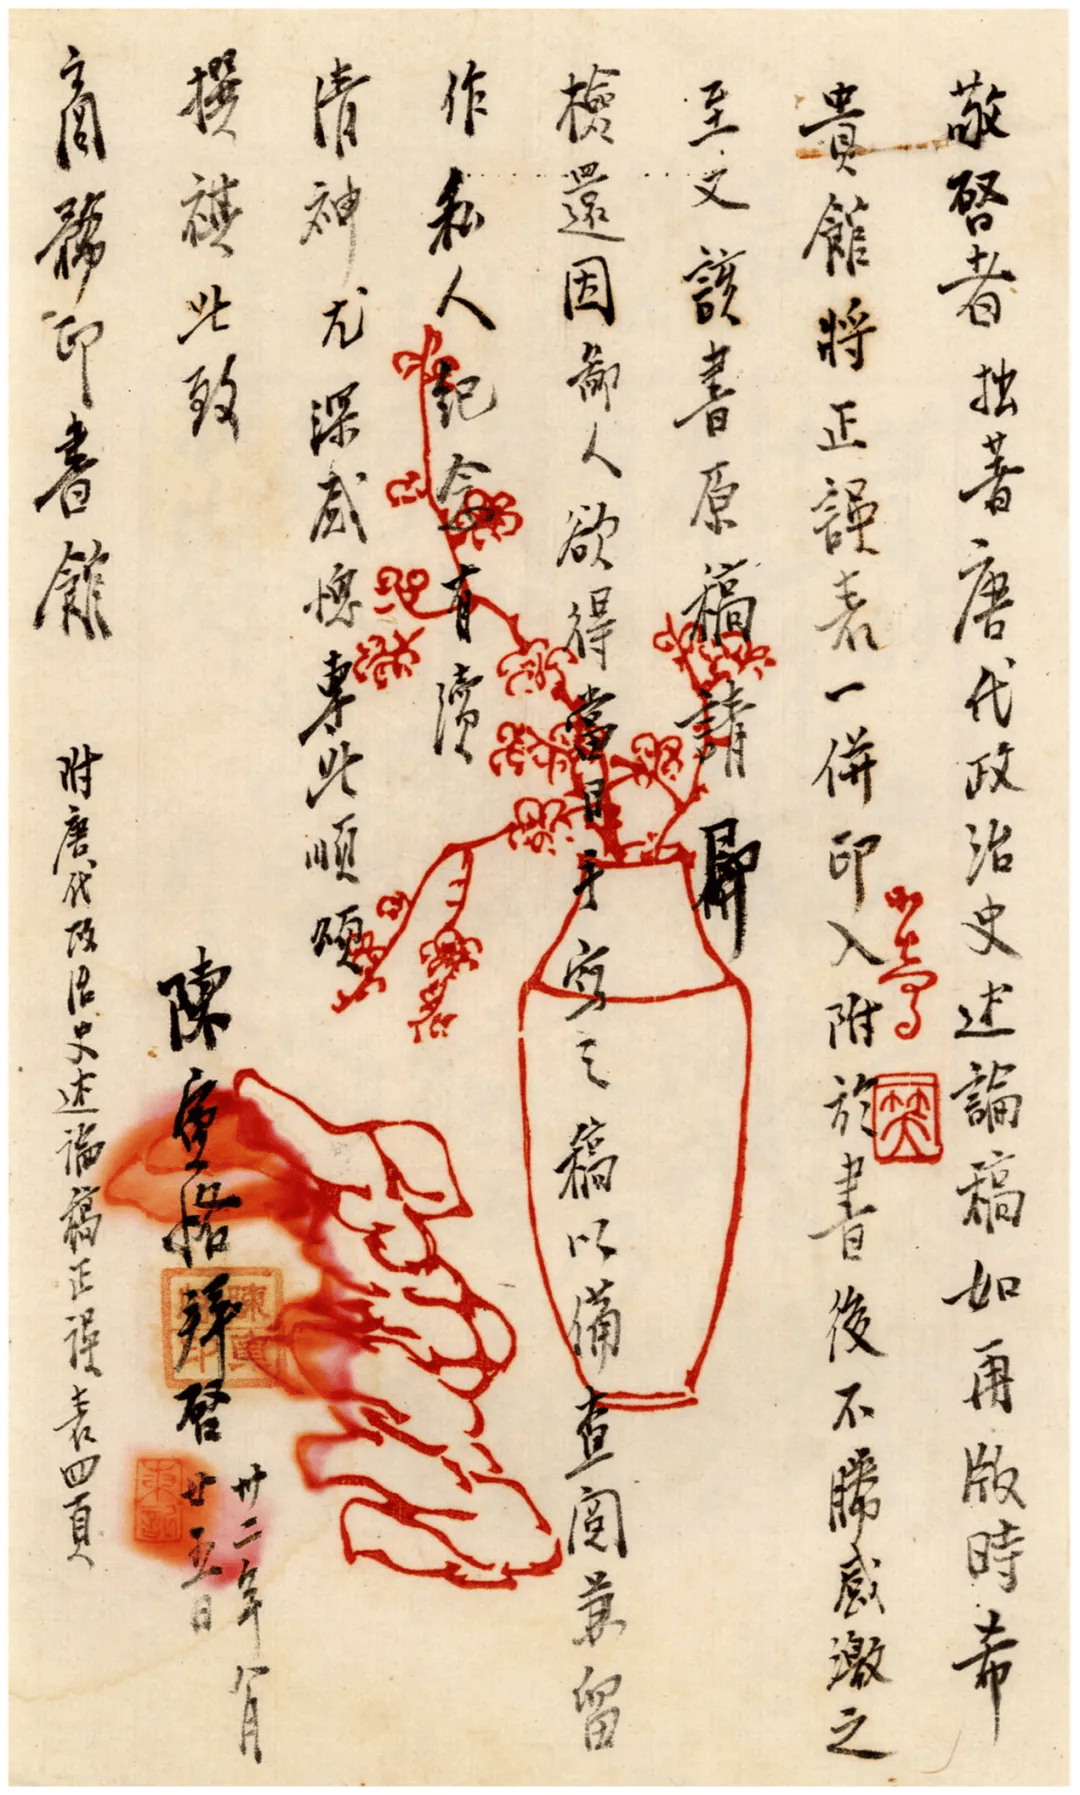 敬啓者拙著唐代政治史述論稿如再版時希
貴館將正誤表一併印入附於書後不勝感激之
至又該書原稿請
檢還因鄙人欲得當日手寫之稿以備查閱兼留
作私人紀念有瀆
清神尤深感愧專此順頌
撰祺此致
商務印書館
陳寅恪拜啓
卅二年八月
廿五日
附唐代政治史述論稿正誤表四頁
陳寅